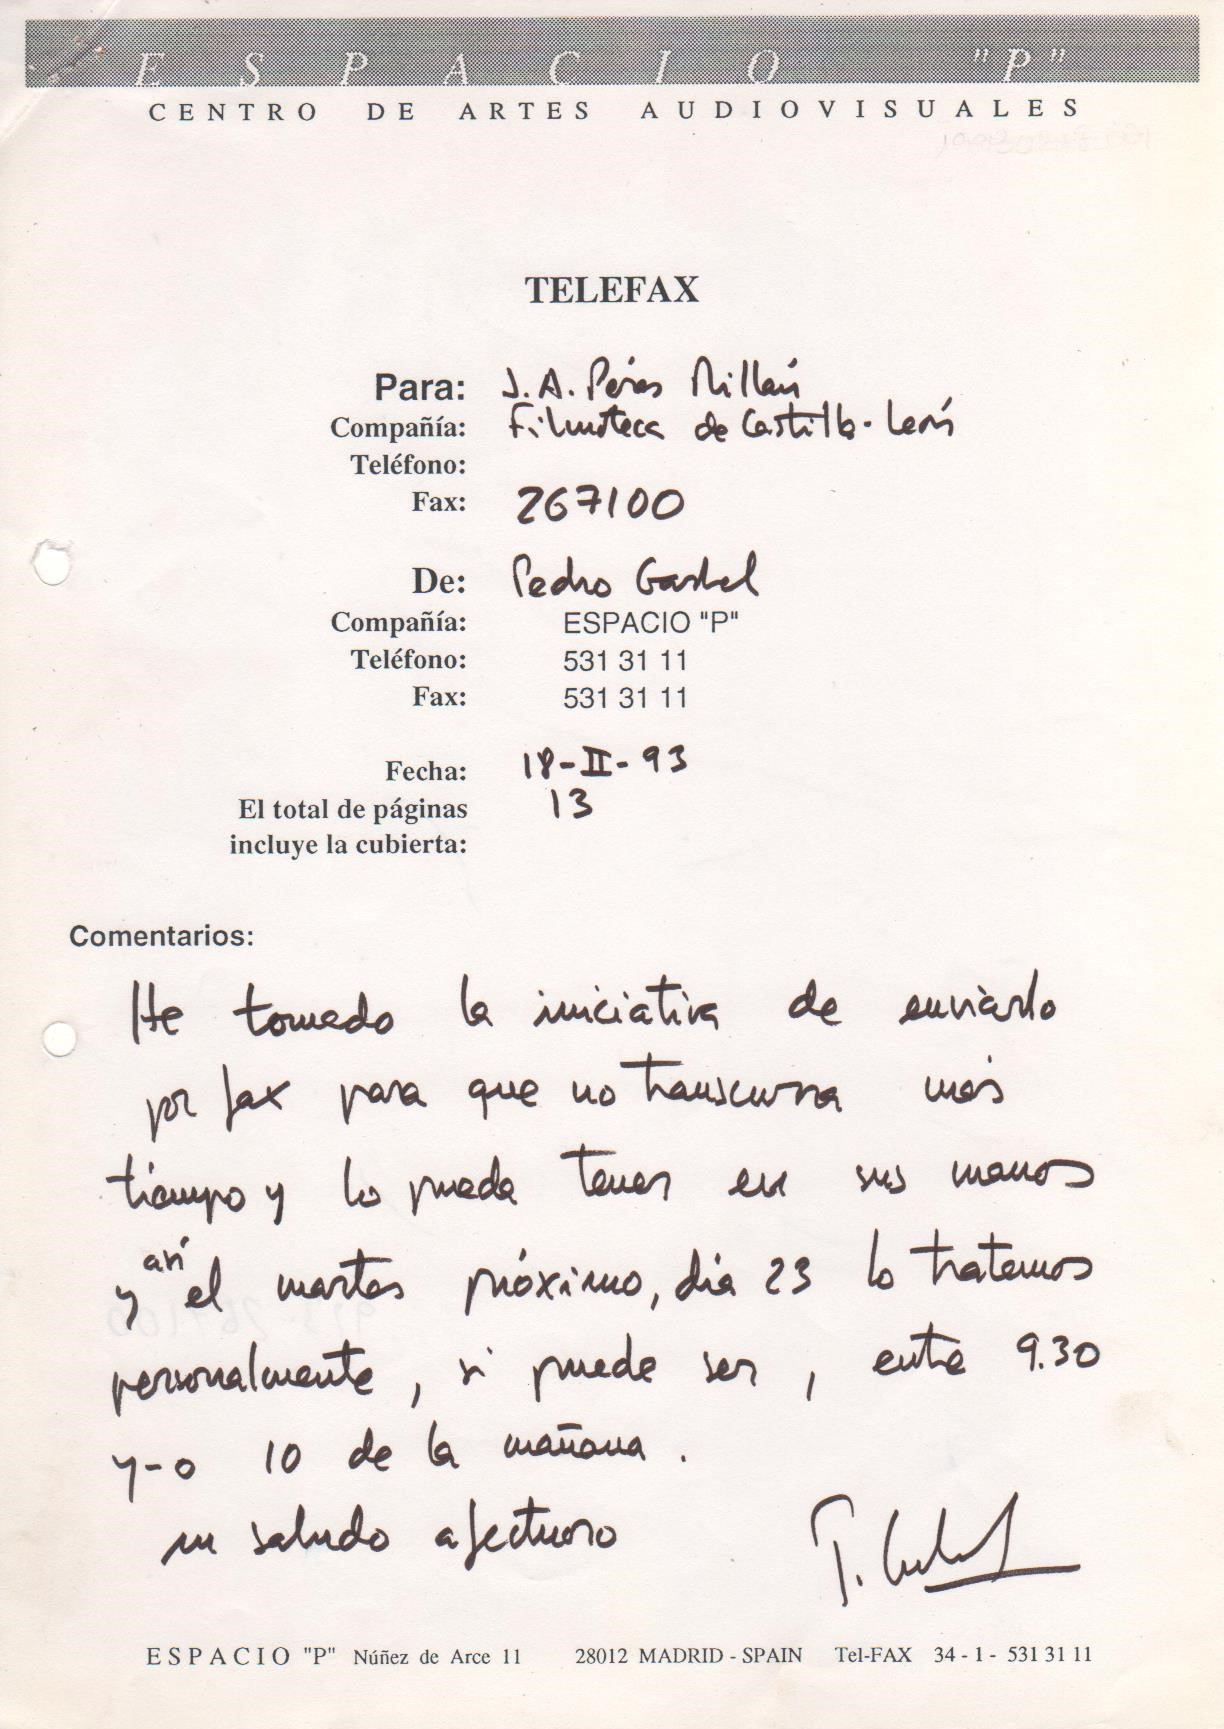 ESPACIO "P"
CENTRO DE ARTES AUDIOVISUALES
TELEFAX
Para: J.A. Pérez Millán
Compañía: Filmoteca de Castilla-León
Teléfono:
Fax: 267100
De: Pedro Garhel
Compañía: ESPACIO "P"
Teléfono: 531 31 11
Fax: 531 31 11
Fecha: 18-II-93
El total de páginas 13
incluye la cubierta:
Comentarios:
He tomado la iniciativa de enviarlo
por fax para que no transcurra más
tiempo y lo pueda tener en sus manos
y así el martes próximo, dia 23 lo tratemos
personalmente, si puede ser, entre 9.30
y-o 10 de la mañana.
un saludo afectuoso
P. Garhel
ESPACIO "P" Núñez de Arce 11 28012 MADRID - SPAIN Tel-FAX 34 - 1 - 531 31 11